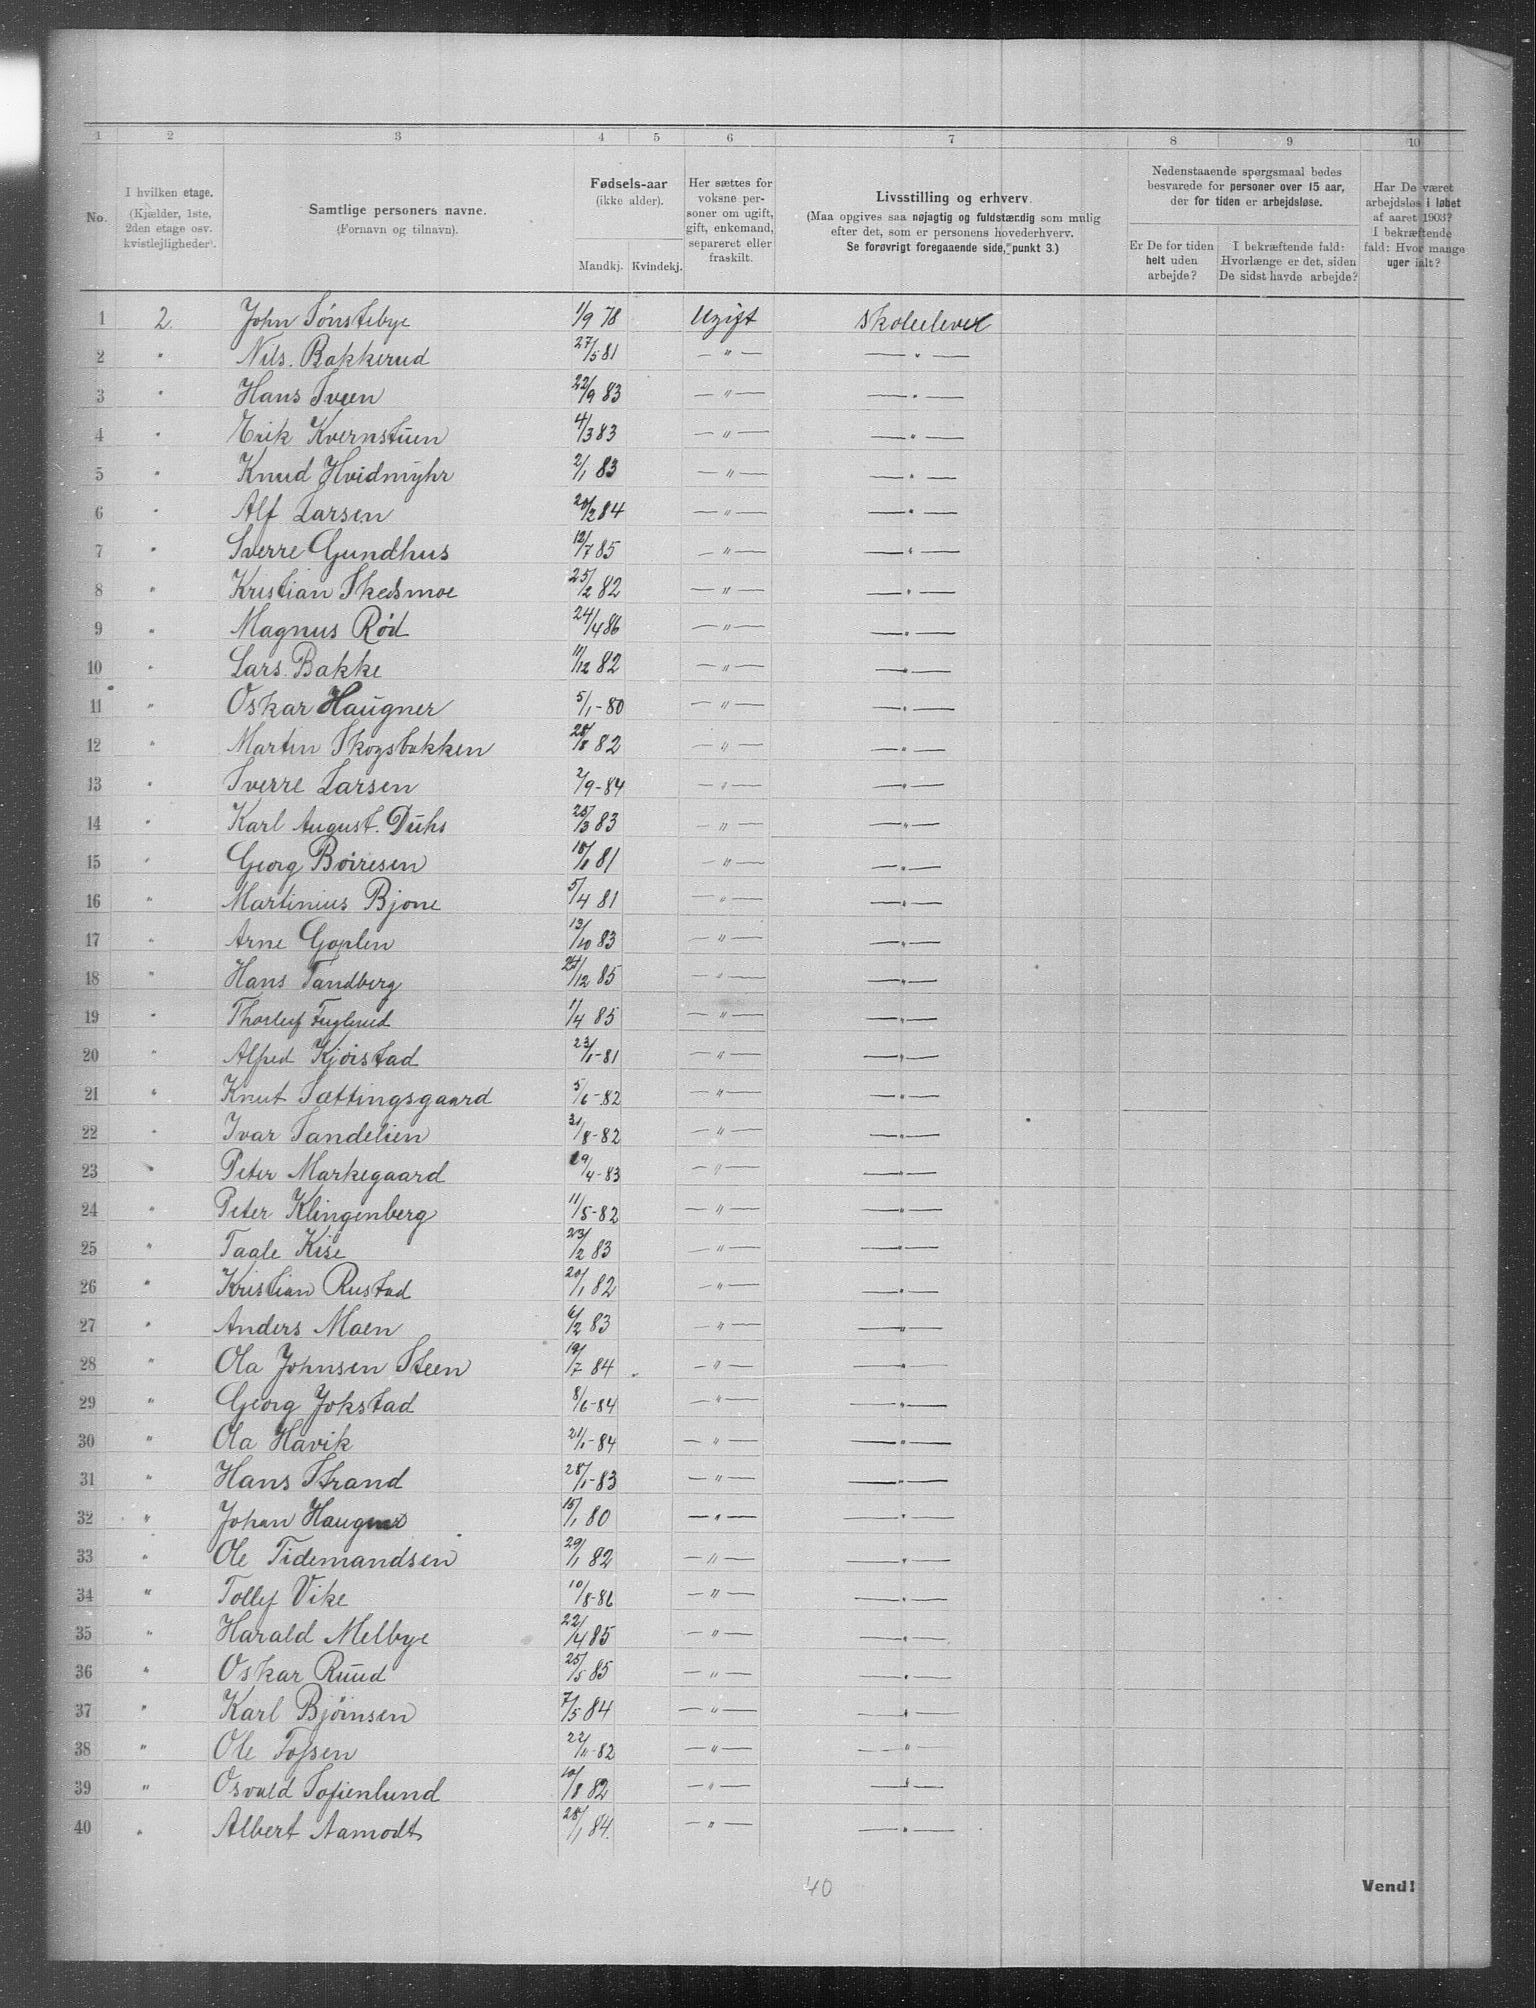 1 2 3 4 5 6 7 8 9 10
No.
I hvilken etage.
(Kjælder, 1ste,
2den etage osv.
kvistlejligheder).
Samtlige personers navne.
(Fornavn og tilnavn).
Fødsels-aar
(ikke alder).
Mandkj. Kvindekj.
Her sættes for
voksne per-
soner om ugift,
gift, enkemand,
separeret eller
fraskilt.
Livsstilling og erhverv.
(Maa opgives saa nøjagtig og fuldstændig som mulig
efter det, som er personens hovederhverv.
Se forøvrigt foregaaende side, punkt 3.)
Nedenstaaende spørgsmaal bedes
besvarede for personer over 15 aar,
der for tiden er arbejdsløse.
Er De for tiden
helt uden
arbejde?
I bekræftende fald:
Hvorlænge er det, siden
De sidst havde arbejde?
Har De været
arbejdsløs i løbet
af aaret 1903?
I bekræftende
fald: Hvor mange
uger ialt?
1 2 John Sønstebye 1/9 78 Ugift Skoleelever
2 " Nils. Bakkerud 27/5 81 — " — — " —
3 " Hans Sveen 22/9 83 — " — — " —
4 " Erik Kvernstuen 4/3 83 — " — — " —
5 " Knud Hvidmyhr 2/1 83 — " — — " —
6 " Alf Larsen 20/2 84 — " — — " —
7 " Sverre Gundhus 12/7 85 — " — — " —
8 " Kristian Skedsmoe 25/2 82 — " — — " —
9 " Magnus Rød 24/4 86 — " — — " —
10 " Lars. Bakke 11/12 82 — " — — " —
11 " Oskar Haugner 5/1-80 — " — — " —
12 " Martin Skogsbakken 28/8 82 — " — — " —
13 " Sverre Larsen 2/9-84 — " — — " —
14 " Karl August. Duhs 25/3 83 — " — — " —
15 " Georg Boiresen 81 — " — — " —
16 " Martinius Bjone 5/4 81 — " — — " —
17 " Arne Goplen 13/10 83 — " — — " —
18 " Hans Tandberg 24/12 85 — " — — " —
19 " Thorleif Fuglerud 1/4 85 — " — — " —
20 " Alfred Kjøistad 23/1-81 — " — — " —
21 " Knut Sættingsgaard 5/6-82 — " — — " —
22 " Ivar Sandelien 31/8-82 — " — — " —
23 " Peter Markegaard 19/4-83 — " — — " —
24 " Peter Klingenberg 11/5-82 — " — — " —
25 " Taale Kise 23/2 83 — " — — " —
26 " Kristian Rustad 20/1 82 — " — — " —
27 " Anders Moen 6/2 83 — " — — " —
28 " Ola Johnsen Steen 19/7 84 — " — — " —
29 " Georg Jokstad 8/6-84 — " — — " —
30 " Ola Havik 21/1-84 — " — — " —
31 " Hans Strand 28/1-83 — " — — " —
32 " Johan Haugner 15/1 80 — " — — " —
33 " Ole Tidemandsen 29/1 82 — " — — " —
34 " Tollef Vike 10/8-86 — " — — " —
35 " Harald Melbye 22/4 85 — " — — " —
36 " Oskar Ruud 25/5 85 — " — — " —
37 " Karl Bjøinsen 7/5 84 — " — — " —
38 " Ole Tofsen 22/11-82 — " — — " —
39 " Osvald Sofienlund 10/8 82 — " — — " —
40 " Albert Aamodt 28/1 84. — " — — " —
40
Vend!